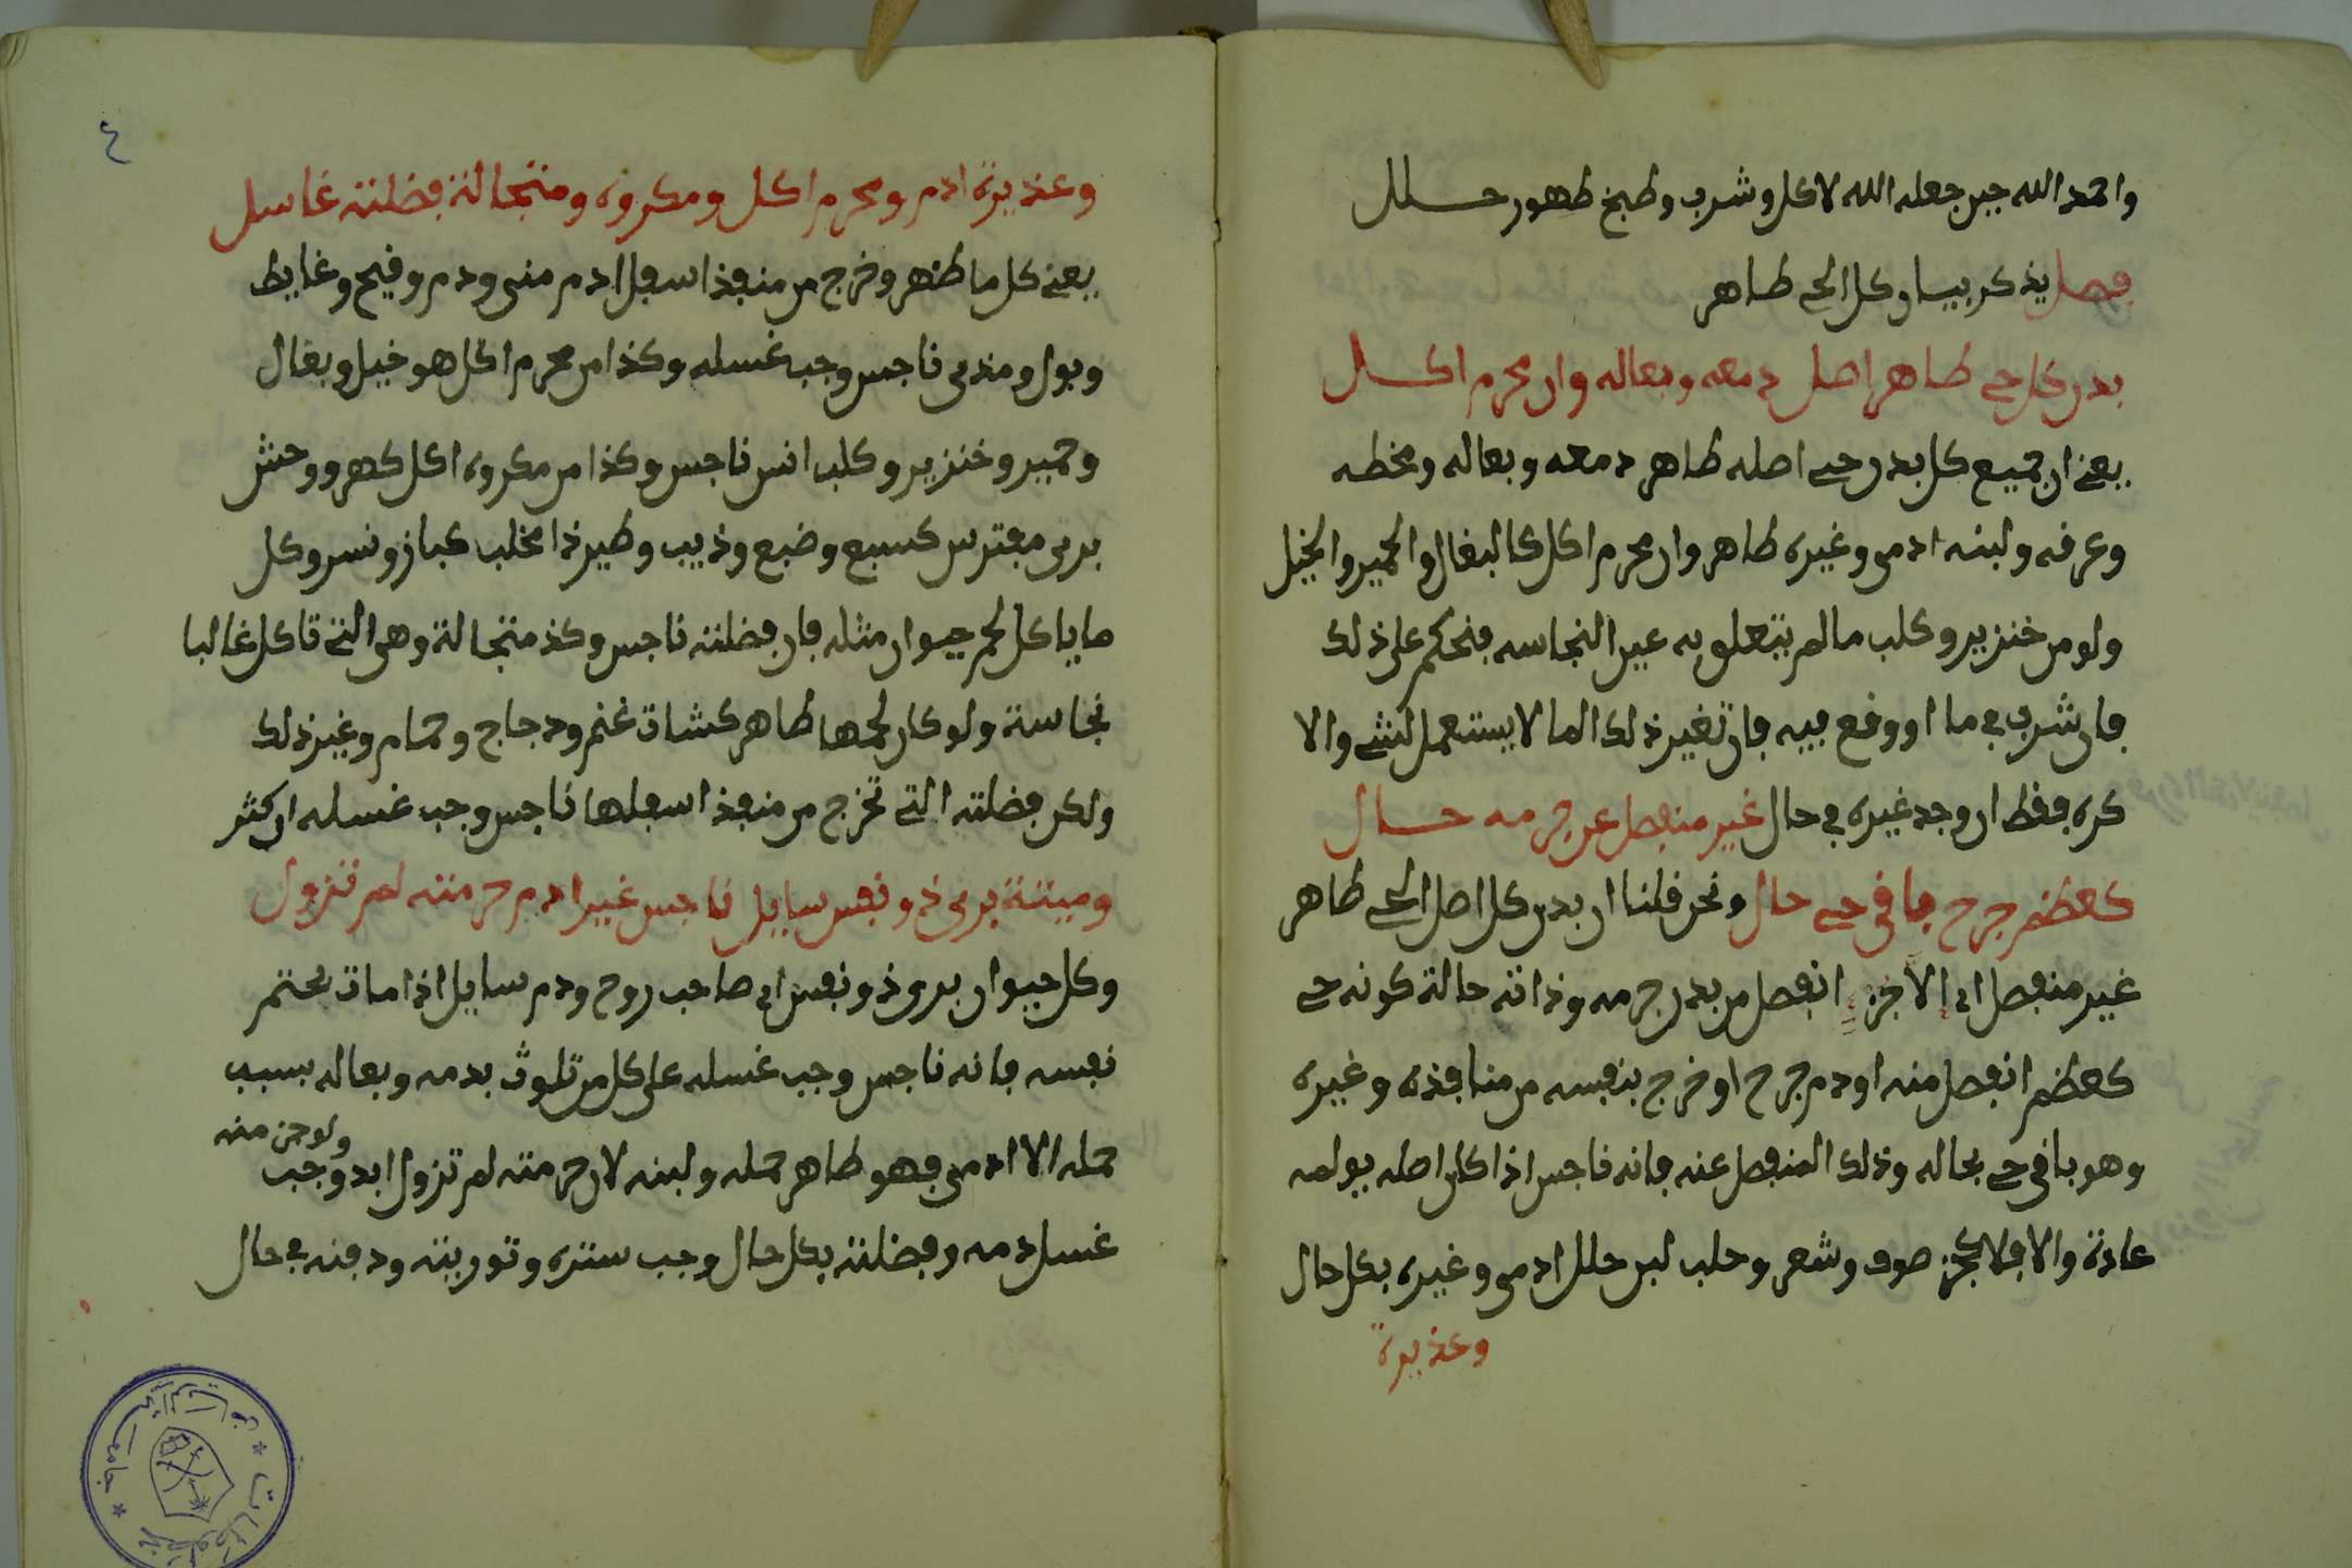 واحمد الله حين جعله الله لاكل وشرب وطبخ طهور حلل
فصل يذكر بيسا وكل الحي طاهر
بدن كل حي طاهر اصل دمعه وبعاله وان محرم اكل
يعني ان جميع كل بدن حي اصله طاهر دمعه وبعاله ومخطه
وعرقه ولبنه ادمي وغيره طاهر وان محرم اكل كالبغال والحمير والخيل
ولو من خنزير وكلب ما لم يتعلق به عين النجاسه فنحكم على ذلك
فان شرب في ما او وقع فيه فان تغير ذلك الما لا يستعمل لشي والا
كره فقط ان وجد غيره في حال غير منفصل عن جرمه حال
كعظم جرح باقي حي حال ونحن قلنا ان بدن كل اصل الحي طاهر
غير منفصل اي الاخر انفصل من بدن جرمه وذاته حالة كونه حي
كعظم انفصل منه او دم جرح او خرج بنفسه من منافذه وغيره
وهو باقي حي بحاله وذلك المنفصل عنه فانه ناجس اذا كان اصله يولمه
عادة والا فلا كجز صوف وشعر وحلب لبن حلل ادمي وغيره بكل حال
وعذيرة
٤
وعذيرة ادم ومحرم اكل ومكروه ومتجالة فضلته غاسل
يعني كل ما ظهر وخرج من منفذ اسفل ادم مني ودم وقيح وغايط
وبول ومذي ناجس وجب غسله وكذا من محرم اكل هو خيل وبغال
وحمير وخنزير وكلب انس ناجس وكذا من مكروه اكل كهر ووحش
بري مفترس كسبع وضبع وذيب وطير ذا مخلب كباز ونسر وكل
ما ياكل لحم حيوان مثله فان فضلته ناجس وكذ متجالة وهي التي تاكل غالبا
نجاسة ولو كان لحمها طاهر كشات غنم ودجاج وحمام وغير ذلك
ولكن فضلته التي تخرج من منفذ اسفلها ناجس وجب غسله ان كثر
وميتة بري ذو نفس سايل ناجس غير ادم حرمته لم تزول
وكل حيوان بري ذو نفس اي صاحب روح ودم سايل اذا مات بحتم
نفسه فانه ناجس وجب غسله على كل من تلوث بدمه وبعاله بسبب
حمله الا ادمي فهو طاهر حمله ولبنه لان حرمته لم تزول ابد وجب
ولو جن منه
غسل دمه وفضلته بكل حال وجب ستره وتوريته ودفنه في حال